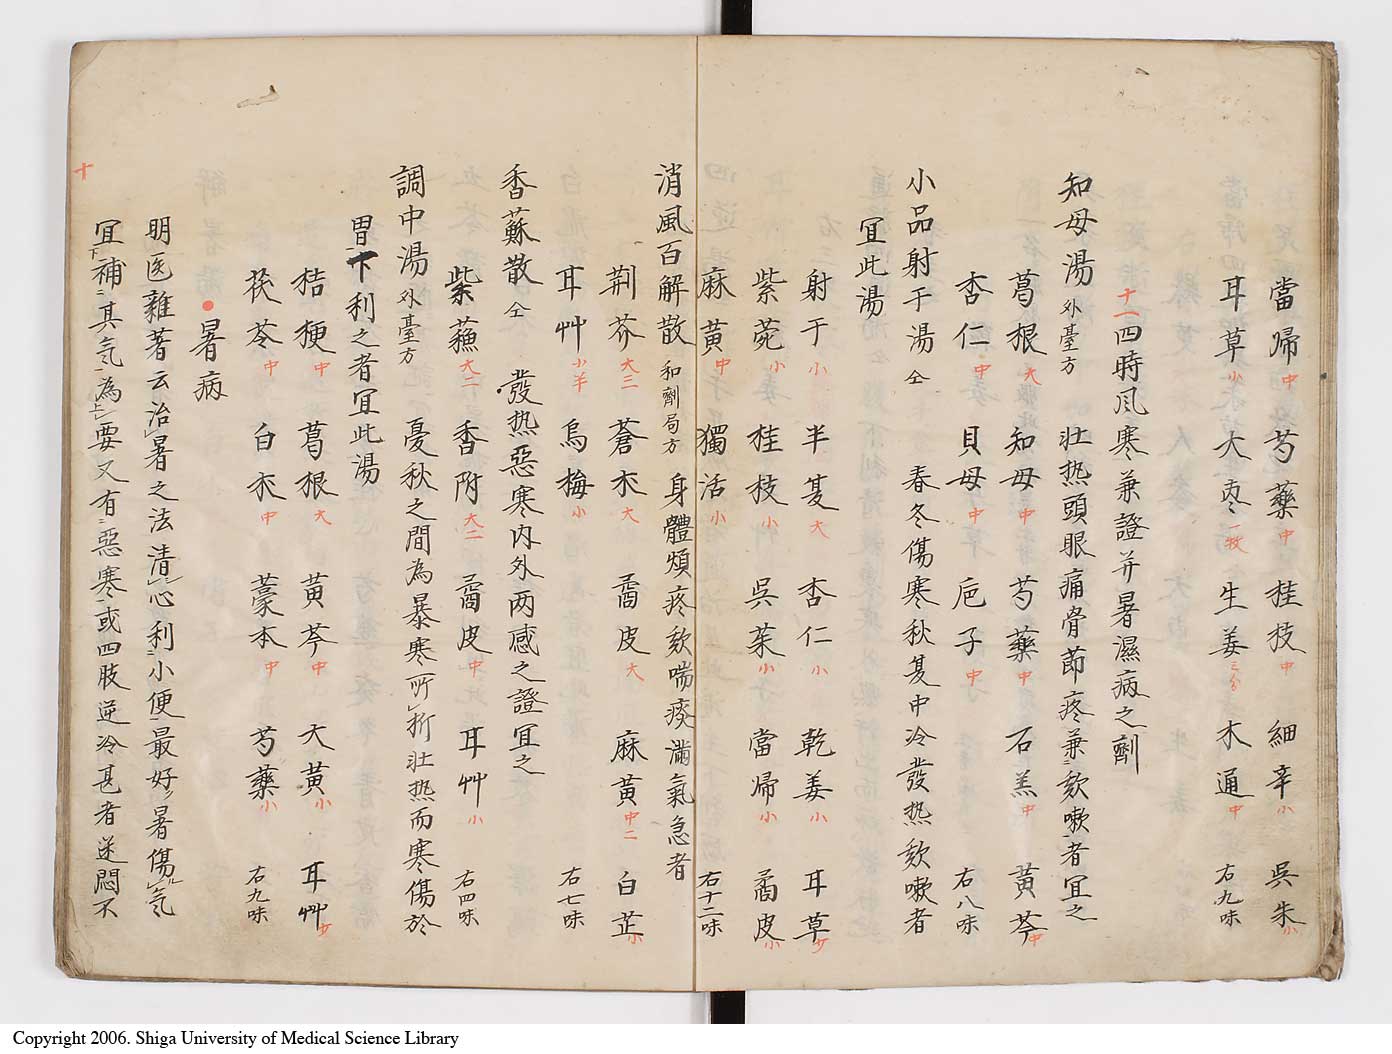 當帰中 芍藥中 桂枝中 細辛小 呉朱小
耳草小 大枣一枚 生姜三分 木通中 右九味
十一四時風寒兼證并暑濕病之劑
知母湯外臺方 壮热頭眼痛骨節疼兼二欬嗽一者宜之
葛根大 知母中 芍藥中 石羔中 黄芩中
杏仁中 貝母中 巵子中 右八味
小品射干湯仝 春冬傷寒秋夏中冷發热欬嗽者
宜此湯
射干小 半夏大 杏仁小 乾姜小 耳草少
紫菀小 桂枝小 呉茱小 當帰小 橘皮小
麻黄中 獨活小 右十二味
消風百解散和劑局方 身體煩疼欬喘痰滿氣急者
荆芥大三 蒼朮大 橘皮大 麻黄中二 白芷小
耳艸小羊 烏梅小 右七味
香蘇散仝 發热惡寒内外两感之證宜之
紫蘓大二 香附大二 橘皮中 耳艸小 右四味
調中湯外臺方 憂秋之間為暴寒所折壮热而寒傷於
胃下利之者宜此湯
桔梗中 葛根大 黄芩中 大黄小 耳艸少
茯苓中 白朮中 藁本中 芍藥小 右九味
暑病
明医雜著云治暑之法清心利小便最好暑傷氣
宜下補二其気一為上要又有二惡寒一或四肢逆冷甚者迷悶不
十
Copyright 2006. Shiga University of Medical Science Library